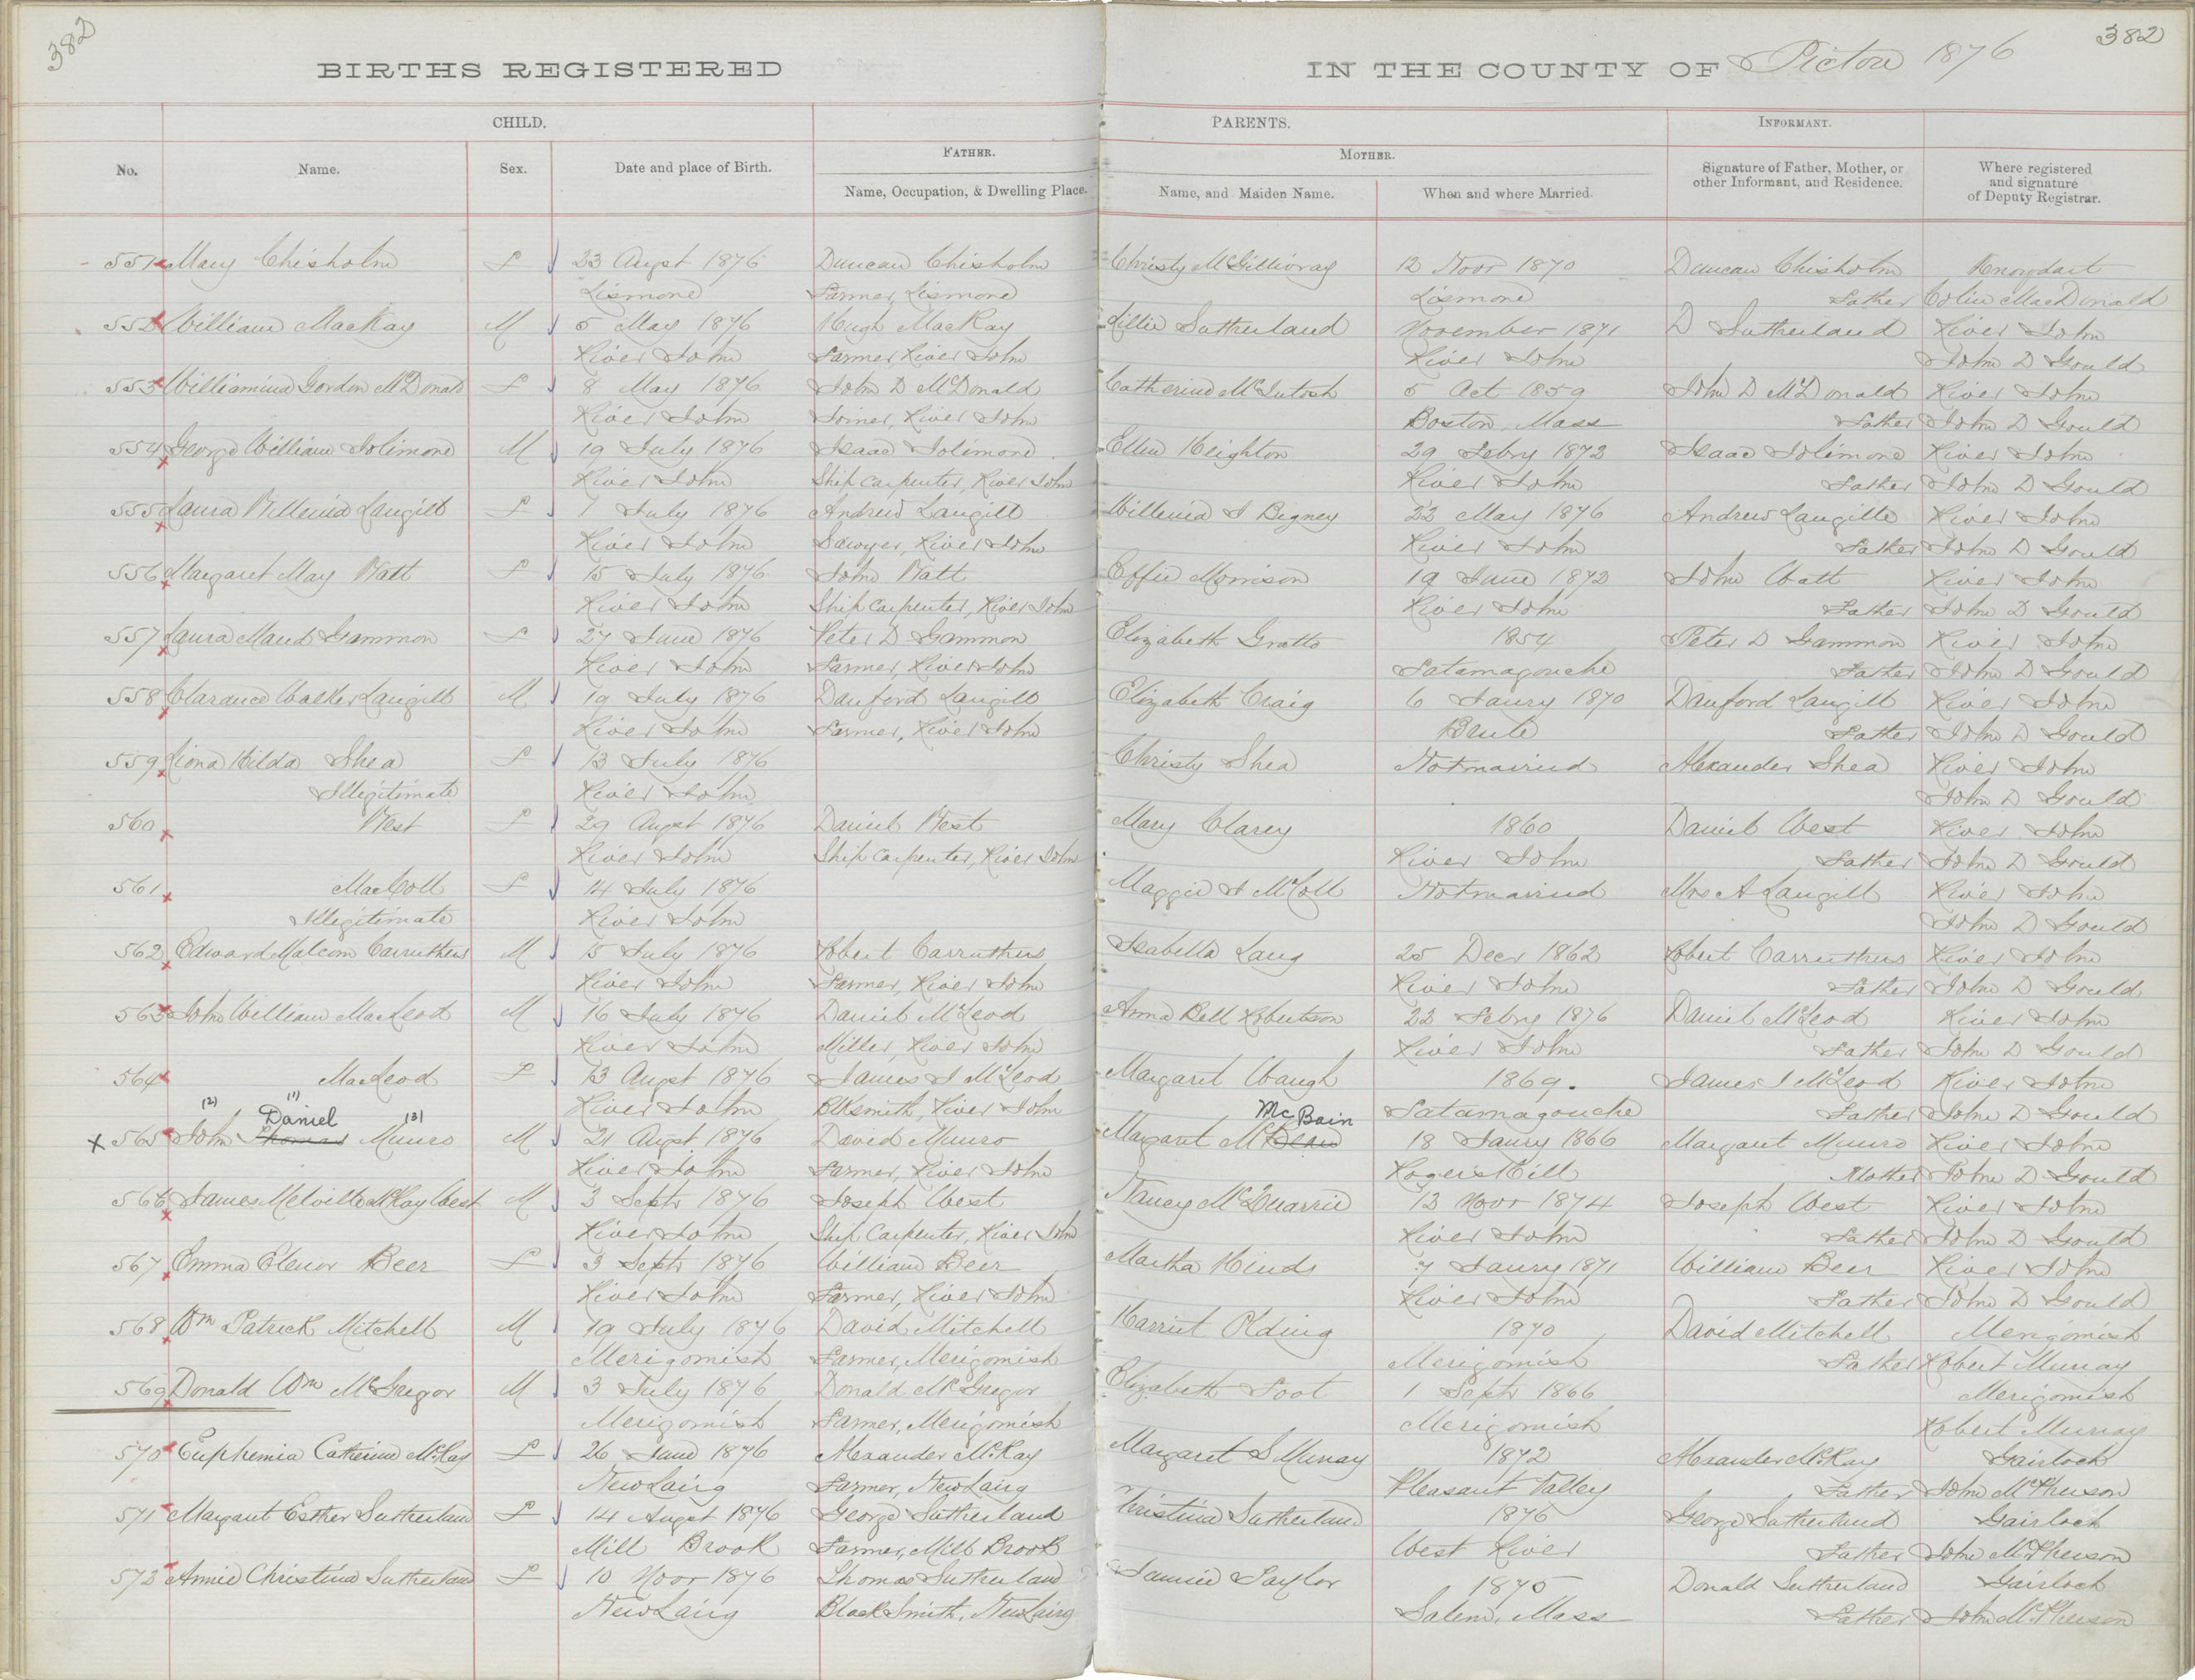 382
382
BIRTHS REGISTERED IN THE COUNTY OF Pictou 1876
CHILD. PARENTS. INFORMANT.
FATHER. MOTHER.
No. Name. Sex. Date and place of Birth. Name, Occupation, & Dwelling Place. Name, and Maiden Name. When and where Married. Signature of Father, Mother, or other Informant, and Residence. Where registered and signature of Deputy Registrar.
551 Mary Chisholm F 23 Augst 1876 Duncan Chisholm Christy McGillivray 12 Novr 1870 Duncan Chisholm Knoydart
Lismore Farmer, Lismore Lismore Father Colin MacDonald
552 William MacKay M 5 May 1876 Hugh MacKay Lillie Sutherland November 1871 D Sutherland River John
River John Farmer, River John River John John D Gould
553 Williamina Gordon McDonald F 8 May 1876 John D McDonald Catherine McIntosh 5 Oct 1859 John D McDonald River John
River John Joiner, River John Boston, Mass Father John D Gould
554 George William Jolimore M 19 July 1876 Isaac Jolimore Ellen Heighton 29 Febry 1872 Isaac Jolimore River John
River John Ship Carpenter, River John River John Father John D Gould
555 Laura Willenia Langill F 1 July 1876 Andrew Langill Willenia J Bigney 22 May 1876 Andrew Langille River John
River John Sawyer, River John River John Father John D Gould
556 Margaret May Watt F 15 July 1876 John Watt Effie Morrison 19 June 1872 John Watt River John
River John Ship Carpenter, River John River John Father John D Gould
557 Laura Maud Gammon F 27 June 1876 Peter D Gammon Elizabeth Gratto 1854 Peter D Gammon River John
River John Farmer, River John Tatamagouche Father John D Gould
558 Clarance Walker Langill M 19 July 1876 Danford Langill Elizabeth Craig 6 Janry 1870 Danford Langill River John
River John Farmer, River John Brule Father John D Gould
559 Hilda Shea F 13 July 1876 Christy Shea Not married Alexander Shea River John
Illegitimate River John John D Gould
560 West F 29 Augst 1876 Daniel West Mary Clarey 1860 Daniel West River John
River John Ship Carpenter, River John River John Father John D Gould
561 MacColl F 14 July 1876 Maggie J McColl Not married Mrs A Langill River John
Illegitimate River John John D Gould
562 Edward Malcom Carruthers M 15 July 1876 Robert Carruthers Isabella Lang 25 Decr 1862 Robert Carruthers River John
River John Farmer, River John River John Father John D Gould
563 John William MacLeod M 16 July 1876 Daniel McLeod Anna Bell Robertson 22 Febry 1876 Daniel McLeod River John
River John Miller, River John River John Father John D Gould
564 MacLeod F 13 Augst 1876 James J McLeod Margaret Waugh 1869. James J McLeod River John
River John Blksmith, River John Tatamagouche Father John D Gould
(2) (1) Daniel (3) McBain
X 565 John Thomas Munro M 21 Augst 1876 David Munro Margaret McBean 18 Janry 1866 Margaret Munro River John
River John Farmer, River John Rogers Hill Mother John D Gould
566 James Melville McKay West M 3 Septr 1876 Joseph West Nancy McQuarrie 13 Novr 1874 Joseph West River John
River John Ship Carpenter, River John River John Father John D Gould
567 Emma Elenor Beer F 3 Septr 1876 William Beer Martha Hinds 7 Janry 1871 William Beer River John
River John Farmer, River John River John Father John D Gould
568 Wm Patrick Mitchell M 19 July 1876 David Mitchell Harriet Olding 1870 David Mitchell Merigomish
Merigomish Farmer, Merigomish Merigomish Father Robert Murray
569 Donald Wm McGregor M 3 July 1876 Donald McGregor Elizabeth Foot 1 Septr 1866 Merigomish
Merigomish Farmer, Merigomish Merigomish Robert Murray
570 Euphemia Catherine McKay F 26 June 1876 Alexander McKay Margaret S Murray 1872 Alexander McKay Gairloch
New Lairg Farmer, New Lairg Pleasant Valley Father John McPherson
571 Margaret Esther Sutherland F 14 Augst 1876 George Sutherland Christina Sutherland 1876 George Sutherland Gairloch
Mill Brook Farmer, Mill Brook West River Father John McPherson
572 Annie Christina Sutherland F 10 Novr 1876 Thomas Sutherland Taylor 1875 Donald Sutherland Gairloch
New Lairg Black Smith, New Lairg Salem, Mass Father John McPherson